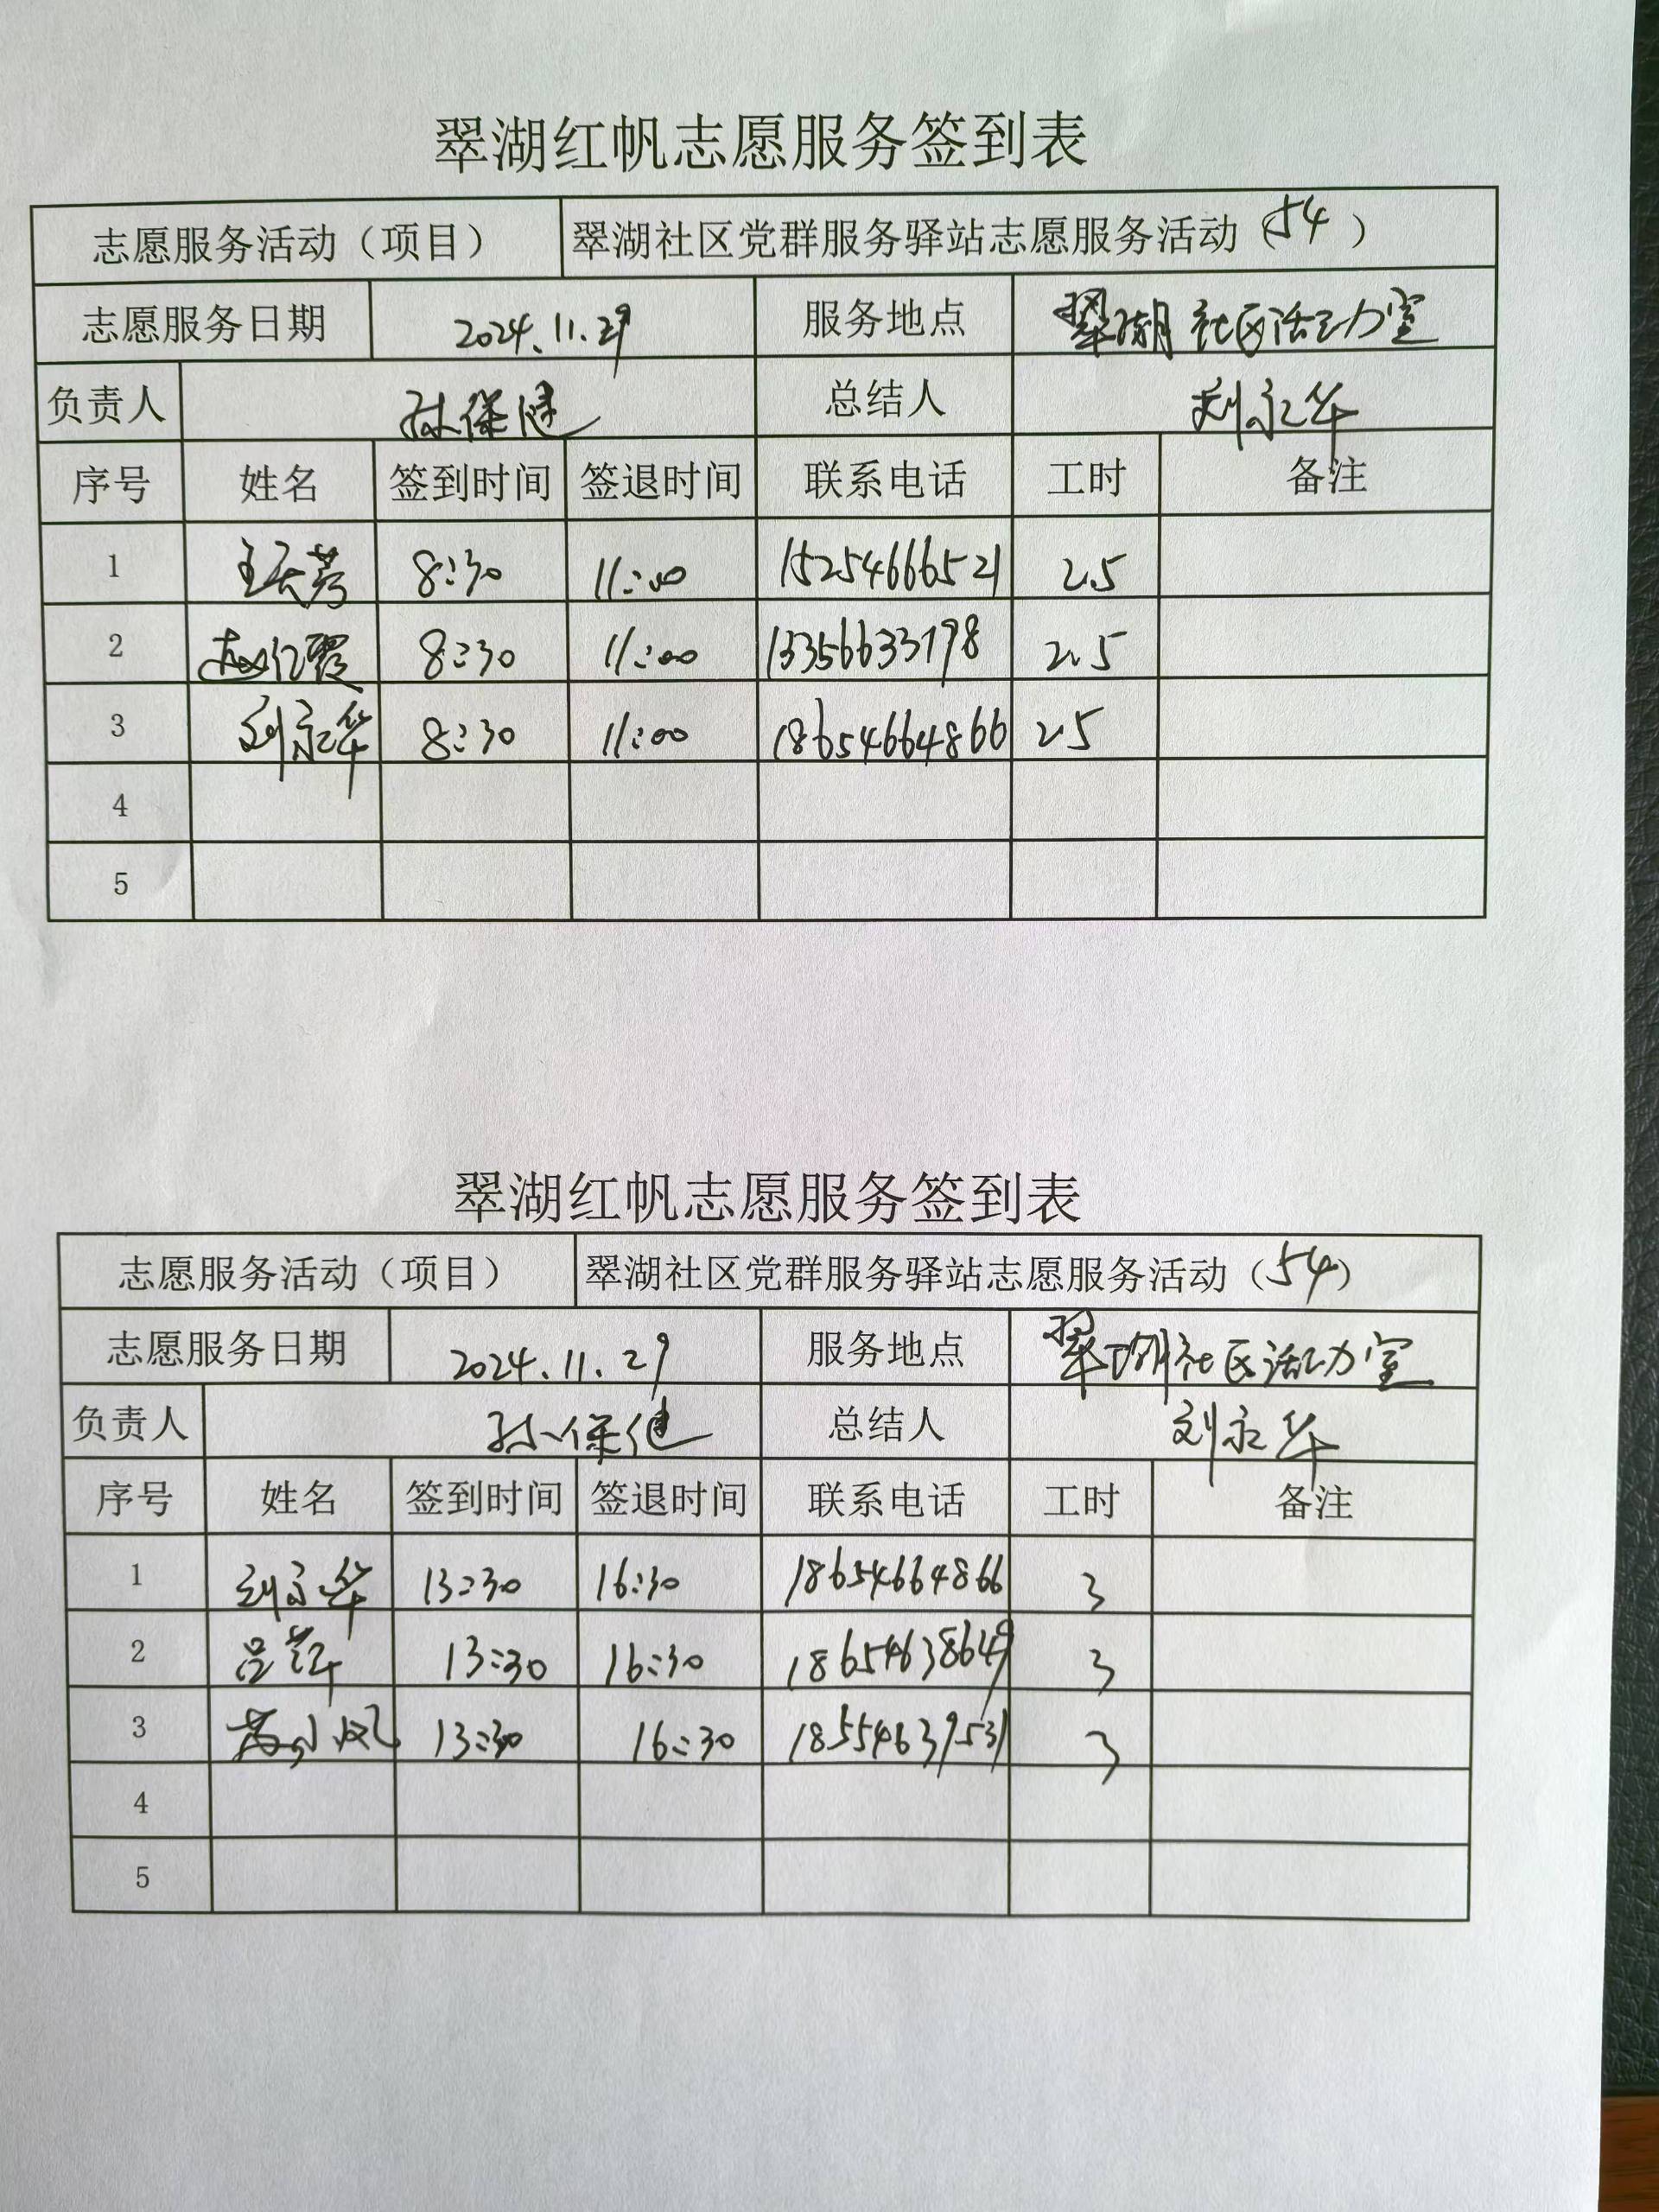 翠湖红帆志愿服务签到表
志愿服务活动（项目） 翠湖社区党群服务驿站志愿服务活动（54）
志愿服务日期 2024.11.29 服务地点 翠湖社区活动室
负责人 孙保健 总结人 刘永华
序号 姓名 签到时间 签退时间 联系电话 工时 备注
1 8:30 11:00 15254666521 2.5
2 赵红霞 8:30 11:00 13356633198 2.5
3 刘永华 8:30 11:00 18654664866 2.5
4
5
翠湖红帆志愿服务签到表
志愿服务活动（项目） 翠湖社区党群服务驿站志愿服务活动（54）
志愿服务日期 2024.11.29 服务地点 翠湖社区活动室
负责人 孙保健 总结人 刘永华
序号 姓名 签到时间 签退时间 联系电话 工时 备注
1 刘永华 13:30 16:30 18654664866 3
2 吕萍 13:30 16:30 18654638649 3
3 13:30 16:30 18554639531 3
4
5